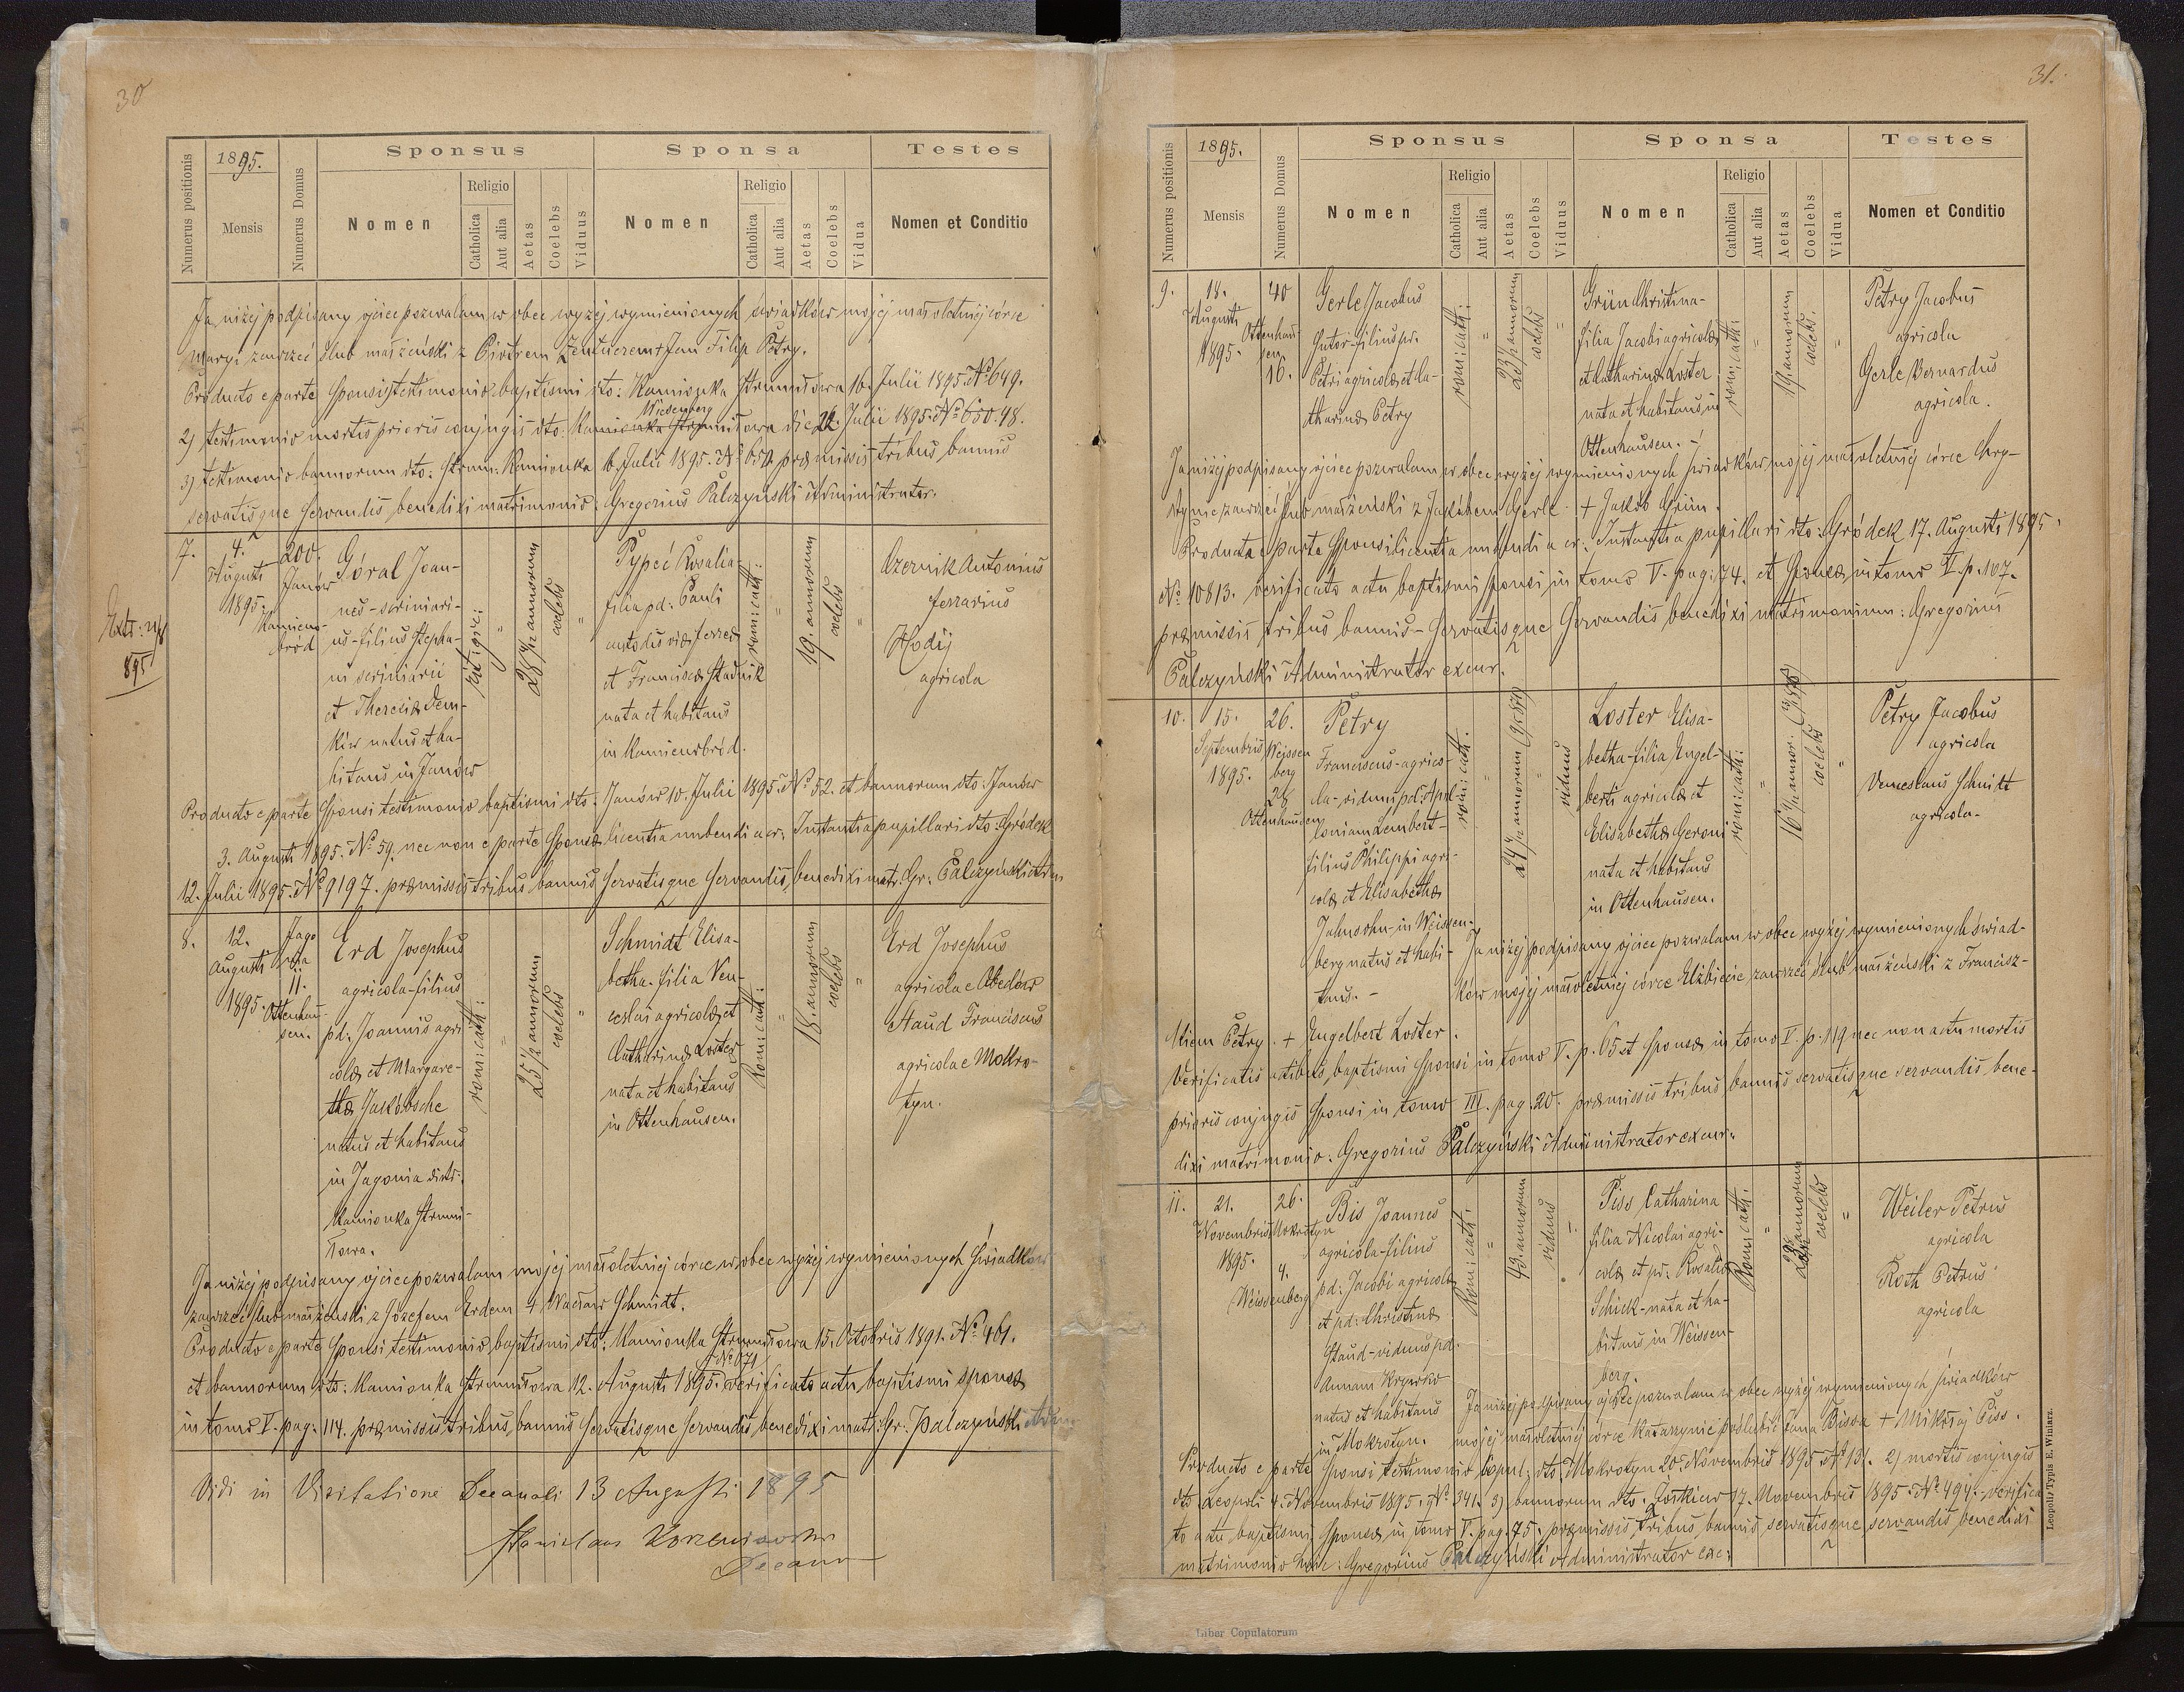 30
Numerus positionis
1895.
Mensis
Numerus Domus
Sponsus
Nomen
Religio
Catholica
Aut alia
Aetas
Coelebs
Viduus
Sponsa
Nomen
Religio
Catholica
Aut alia
Aetas
Coelebs
Vidua
Testes
Nomen et Conditio
Ja niżej podpisany ojciec pozwalam w obec wyżej wymienionych świadków mojej małoletniej córce
Maryi zawrzeć ślub małżeński z Piotrem + Jan Filip Petry.
Producto e parte Sponsi testimonio baptismi dto: Kamionka Strumiłowa 16. Julii 1895. No 649.
Wiesenberg
2) testimonio mortis prioris conjugis dto: Kamionka Strumiłowa die 22. Julii 1895. No 650.48.
3) testimonio bannorum dto: Strum: Kamionka Julii 1895. No 650. præmissis tribus bannis
servatisque servandis benedixi matrimonio: Gregorius Pałczyński Administrator.
7.
4.
Augusti
1895.
200.
Janów
Kamieno-
bród
Góral Joan-
nes - scriniari-
us - filius Stepha-
ni scriniarii
et Theresiæ Dem-
ków natus et ha-
bitans in Janów
rit: gr:
"
28 1/2 annorum
coelebs
"
Pypeć Rosalia
filia pd: Pauli
custodis viæ ferreæ
et Franciscæ Stadnik
nata et habitans
in Kamienobród.
rom: cath:
"
19. annorum
coelebs
"
Czernik Antonius
ferrarius
Hodij
agricola
Extr:
895
Producto e parte Sponsi testimonio baptismi dto. Janów 10. Julii 1895. No 52. et bannorum dto: Janów
3. Augusti 1895. No 59. nec non e parte Sponsæ licentia nubendi a cr: Instantia pupillari dto: Gródek
12. Julii 1895. No 9197. præmissis tribus bannis servatisque servandis, benedixi matr. Gr. Pałczyński Adm
8.
12.
Augusti
1895.
Jago
nia
11.
Ottenhau-
sen.
Erd Josephus
agricola - filius
pd: Joannis agri
colæ et Margare-
thæ Jakobsche
natus et habitans
in Jagonia distr:
Kamionka Strumi-
łowa.
rom: cath:
"
25 1/2 annorum
coelebs
"
Schmidt Elisa-
betha - filia Ven-
ceslai agricolæ et
Catharinæ Loster
nata et habitans
in Ottenhausen.
Rom: cath:
"
18. annorum
coelebs
"
Erd Josephus
agricola e Obedów
Staud Franciscus
agricola e Mokro-
tyn.
Ja niżej podpisany ojciec pozwalam mojej małoletniej córce w obec wyżej wymienionych świadków
zawrzeć ślub małżeński z Józefem Erdem + Wacław Schmidt.
Producto e parte Sponsi testimonio baptismi dto: Kamionka Strumiłowa 15. Octobris 1891. No 461.
No 671
et bannorum dto: Kamionka Strumiłowa 12. Augusti 1895. verificato actu baptismi sponsæ
in tomo V. pag: 114. præmissis tribus bannis servatisque servandis benedixi matr: Gr: Pałczyński Adm
Vidi in Visitatione Decanali 13 Augusti 1895
Stanislaus Korzeniowski
Decanus
31.
Numerus positionis
1895.
Mensis
Numerus Domus
Sponsus
Nomen
Religio
Catholica
Aut alia
Aetas
Coelebs
Viduus
Sponsa
Nomen
Religio
Catholica
Aut alia
Aetas
Coelebs
Vidua
Testes
Nomen et Conditio
9.
18.
Augusti
1895.
40
Ottenhau
sen
16.
Gerle Jacobus
sutor - filius pr.
Petri agricolæ et Ca-
tharinæ Petry
rom: cath:
"
23 1/2 annorum
coelebs
"
Grün Christina -
filia Jacobi agricolæ
et Catharinæ Loster
nata et habitans in
Ottenhausen. -
rom: cath:
"
19 annorum
coelebs.
"
Petry Jacobus
agricola
Gerle Bernardus
agricola.
Ja niżej podpisany ojciec pozwalam w obec wyżej wymienionych świadków mojej małoletniej córce Kry-
stynie zawrzeć ślub małżeński z Jakóbem Gerle. + Jakób Grün.
Producta e parte Sponsi licentia nubendi a cr: Instantia pupillari dto: Gródek 17. Augusti 1895.
No 10813. verificato actu baptismi sponsi in tomo V. pag: 74. et Sponsæ in tomo V. p. 107.
præmissis tribus bannis - servatisque servandis benedixi matrimonium: Gregorius
Pałczyński Administrator excur.
10.
15.
Septembris
1895.
26.
Weissen
berg
28
Ottenhausen
Petry
Franciscus - agrico-
la - viduus pd: Apol-
loniam Lembert -
filius Philippi agri-
colæ et Elisabethæ
Jakusohn - in Weissen-
berg natus et habi-
tans. -
rom: cath.
"
"
viduus
Loster Elisa-
betha - filia Engel-
berti agricolæ et
Elisabethæ Geroni
nata et habitans
in Ottenhausen.
rom: cath:
"
coelebs
"
Petry Jacobus
agricola
Venceslaus Schmidt
agricola -
Ja niżej podpisany ojciec pozwalam w obec wyżej wymienionych świad-
ków mojej małoletniej córce Elżbiecie zawrzeć ślub małżeński z Francisz-
kiem Petry. + Engelbert Loster.
Verificatis actibus baptismi Sponsi in tomo V. p. 65 et Sponsæ in tomo V. p. 119 nec non actu mortis
prioris conjugis Sponsi in tomo III. pag. 20. præmissis tribus bannis servatisque servandis bene-
dixi matrimonio. Gregorius Pałczyński Administrator excur.
11.
21.
Novembris
1895.
26.
Mokrotyn
4.
Weissenberg
Bis Joannes
agricola - filius
pd: Jacobi agricolæ
et pd: Christinæ
Staud - viduus pd.
Annam Krywko
natus et habitans
in Mokrotyn.
Rom: cath:
"
43. annorum
viduus
Piss Catharina
filia Nicolai agri-
colæ et pr: Rosaliæ
Schick - nata et ha-
bitans in Weissen-
berg.
Rom: cath:
"
annorum
coelebs
"
Weiler Petrus
agricola
Roth Petrus
agricola
Ja niżej podpisany ojciec pozwalam w obec wyżej wymienionych świadków
mojej małoletniej córce Katarzynie poślubić Jana Bissa + Mikołaj Piss.
Producto e parte Sponsi testimonio copul: dto: Mokrotyn 20. Novembris 1895 No 131. 2) mortis conjugis
dto Leopoli 4. Novembris 1895. No 341. 3) bannorum dto. Żółkiew 17. Novembris 1895. No 494. - verifica
to actu baptismi Sponsæ in tomo V. pag. 75. præmissis tribus bannis, servatisque servandis benedixi
matrimonio huic: Gregorius Pałczyński Administrator exc:
Leopoli, Typis E. Winiarz.
Liber Copulatorum